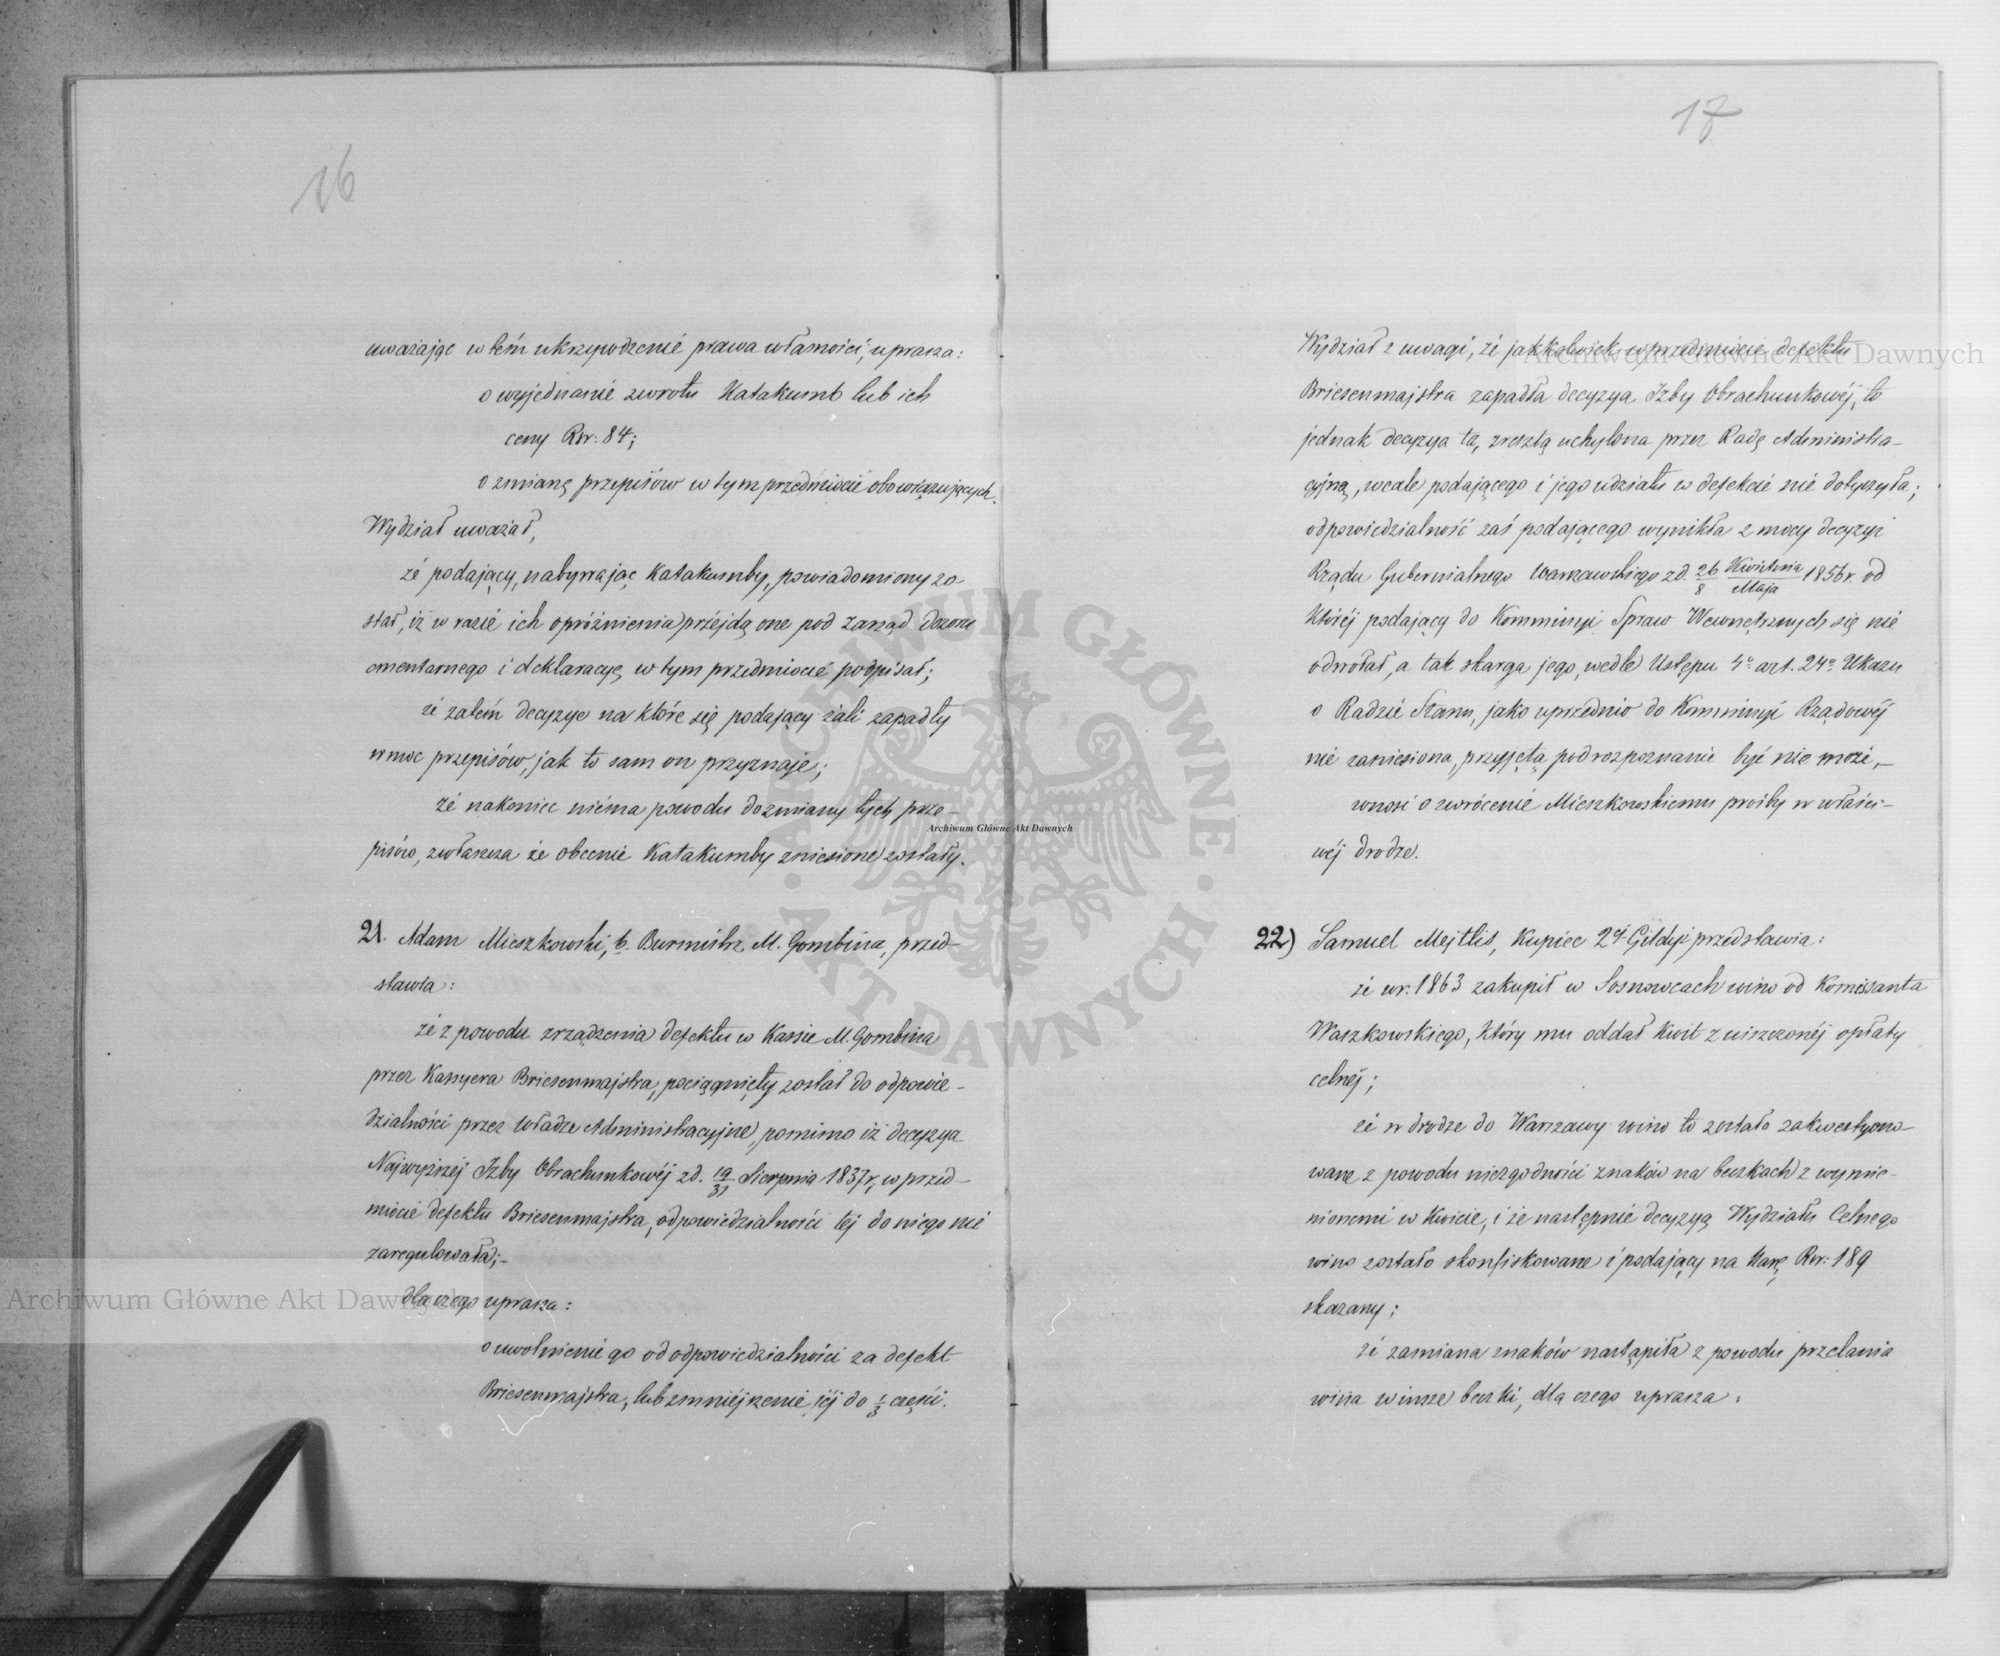 16
uważając w tém ukrzywdzenie prawa własności, uprasza:
o wyjednanie zwrotu Katakumb lub ich
ceny Rsr: 84;
o zmianę przepisów w tym przedmiocie obowiązujących.
Wydział uważał,
że podający, nabywając Katakumby, powiadomiony zo-
stał, iż w razie ich opróżnienia przéjdą one pod zarząd dozoru
cmentarnego i deklaracyę w tym przedmiocie podpisał;
że zatém decyzye na które się podający żali zapadły
w moc przepisów, jak to sam on przyznaje;
że nakoniec niéma powodu do zmiany tych prze-
pisów, zwłaszcza że obecnie Katakumby zniesione zostały.
21. Adam Mieszkowski, b. Burmistrz M. Gombina, przed-
stawia:
że z powodu zrządzenia defektu w Kassie M. Gombina
przez Kassyera Briesenmajstra, pociągnięty został do odpowie-
dzialności przez Władze Administracyjne, pomimo iż decyzya
Najwyższéj Izby Obrachunkowéj z d. 19/31 Sierpnia 1837 r. w przed-
miocie defektu Briesenmajstra, odpowiedzialności téj do niego nie
zaregulowała;-
dla czego uprasza:
o uwolnienie go od odpowiedzialności za defekt
Briesenmajstra, lub zmniéjszenie jéj do 1/3 części.
17
Wydział z uwagi, że jakkolwiek w przedmiocie defektu
Briesenmajstra zapadła decyzya Izby Obrachunkowéj, to
jednak decyzya ta, zresztą uchylona przez Radę Administra-
cyjną, wcale podającego i jego udziału w defekcie nie dotyczyła;
odpowiedzialność zaś podającego wynikła z mocy decyzyi
Rządu Gubernialnego Warszawskiego z d. 26/8 Kwietnia/Maja 1856 r. od
któréj podający do Kommissyi Spraw Wewnętrznych się nie
odwołał, a tak skarga jego, wedle Ustępu 4º art. 24º Ukazu
o Radzie Stanu, jako uprzednio do Kommissyi Rządowéj
nie zaniesiona, przyjętą pod rozpoznanie być nie może,-
wnosi o zwrócenie Mieszkowskiemu prośby w właści-
wéj drodze.
22) Samuel Mejtlis, Kupiec 2éj Gildyi przedstawia:
że w r. 1863 zakupił w Sosnowcach wino od Komissanta
Waszkowskiego, który mu oddał kwit z uiszczonéj opłaty
celnéj;
że w drodze do Warszawy wino to zostało zakwestyono-
wane z powodu niezgodności znaków na beczkach z wymie-
nionemi w kwicie, i że następnie decyzyą Wydziału Celnego
wino zostało skonfiskowane i podający na karę Rsr: 189
skazany;
że zamiana znaków nastąpiła z powodu przelania
wina w insze beczki, dla czego uprasza:
Archiwum Główne Akt Dawnych
Archiwum Główne Akt Dawnych
Archiwum Główne Akt Dawnych
ARCHIWUM GŁÓWNE AKT DAWNYCH